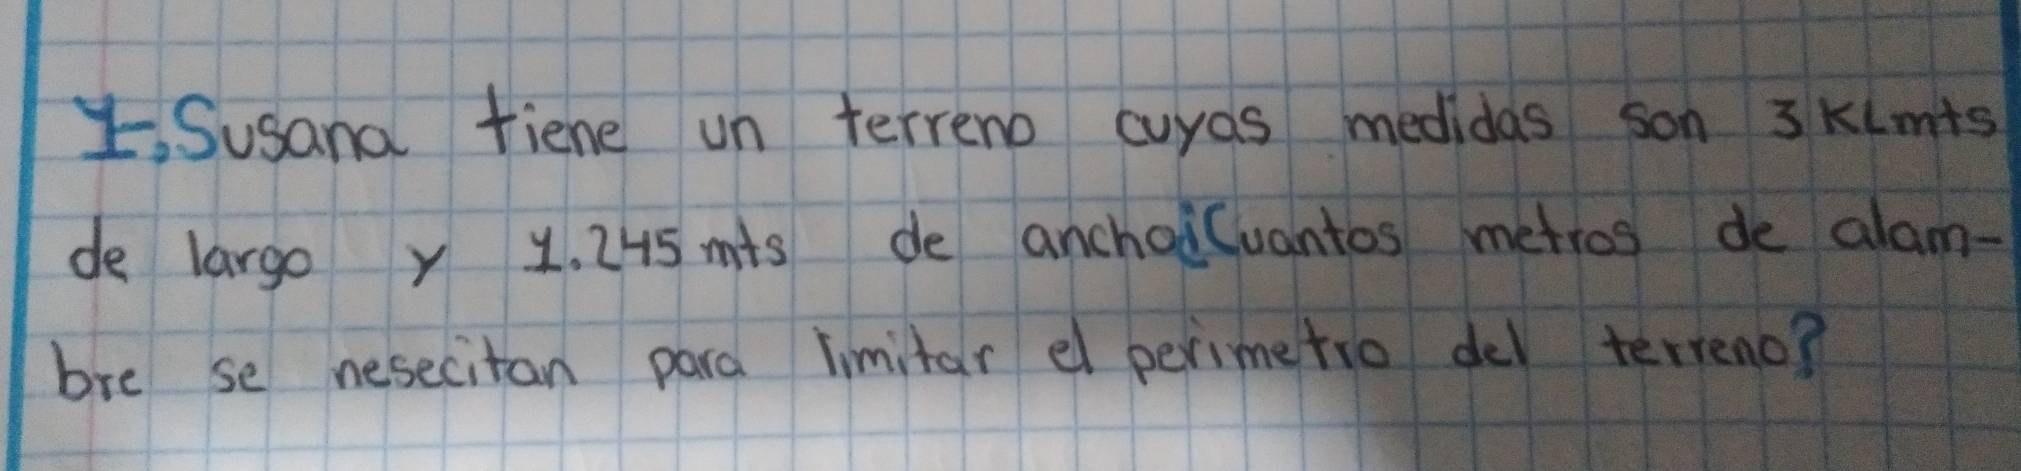 1-, Susana tiene un terreno cuyas medidas son 3 KLmts
de largo y 1.245 mts de ancho¿Cuantos metros de alam-
bre se nesecitan para limitar el perimetro del terreno?